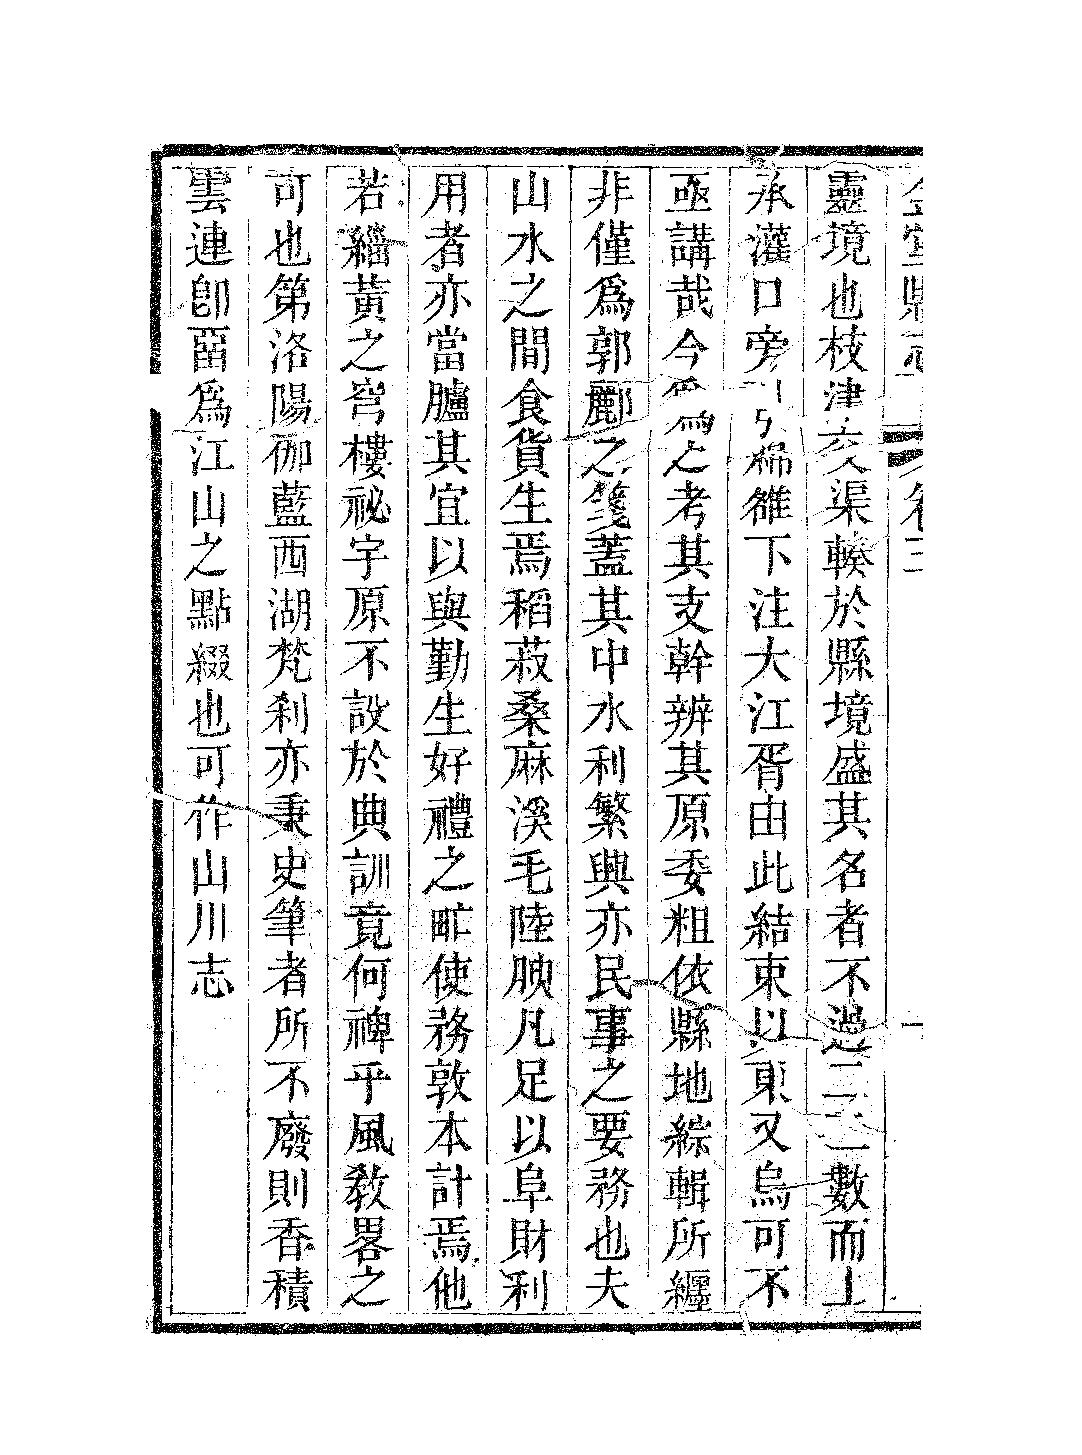 金堂縣志 卷三 一
靈境也枝津交渠輳於縣境盛其名者不過二三數而上
承灌口旁引綿雒下注大江胥由此結束以東又烏可不
亟講哉今爲之考其支幹辨其原委粗依縣地綜輯所纒
非僅爲郭酈之箋蓋其中水利繁興亦民事之要務也夫
山水之間食貨生焉稻菽桑麻溪毛陸腴凡足以阜財利
用者亦當臚其宜以與勤生好禮之甿使務敦本計焉他
若緇黃之穹樓祕宇原不設於典訓竟何禆乎風敎畧之
可也第洛陽伽藍西湖梵刹亦秉史筆者所不廢則香積
雲連卽畱爲江山之點綴也可作山川志